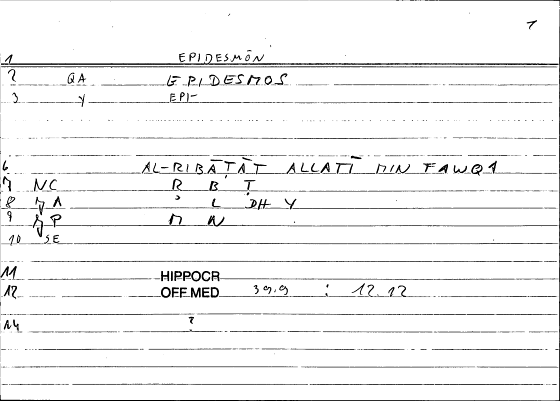 1
1 EPIDESMŌN
2 QA EPIDESMOS
3 Y EPI-
6 AL-RIBĀṬĀT ALLATĪ MIN FAWQ
7 NC R B Ṭ
8 A ʾ L DH Y
9 P M N
10 SE
11 HIPPOCR
12 OFF.MED 39.9 : 12.12
14 ?